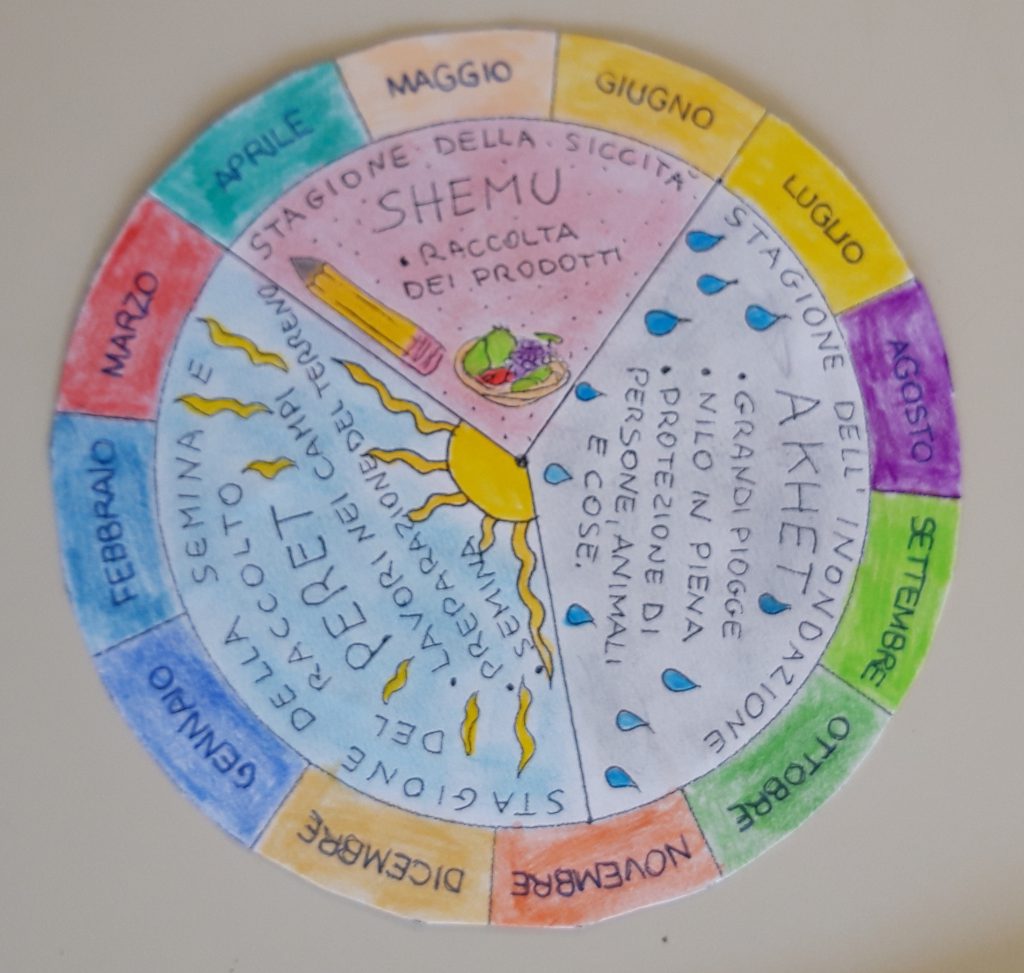 GENNAIO
FEBBRAIO
MARZO
APRILE
MAGGIO
GIUGNO
LUGLIO
AGOSTO
SETTEMBRE
OTTOBRE
NOVEMBRE
DICEMBRE
STAGIONE DELLA SICCITÀ
SHEMU
• RACCOLTA
DEI PRODOTTI
STAGIONE DELL' INONDAZIONE
AKHET
• GRANDI PIOGGE
• NILO IN PIENA
• PROTEZIONE DI
PERSONE, ANIMALI
E COSE.
STAGIONE DELLA SEMINA E
DEL RACCOLTO
PERET
• LAVORI NEI CAMPI
• PREPARAZIONE DEL TERRENO
• SEMINA